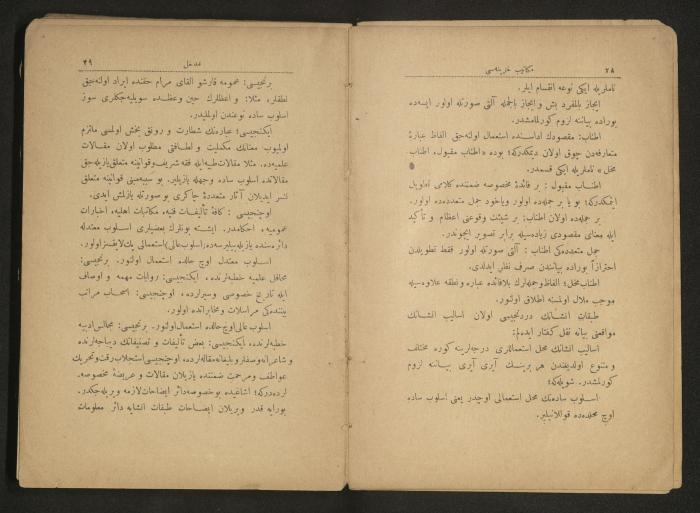 ٢٨ مكاتيب خزينه‌سى
ناملريله ايكى نوعه انقسام ايلر.
ايجاز بالمفرد بش و ايجاز بالجمله آلتى صورتله اولور ايسه‌ده
بوراده بياننه لزوم كورلمامشدر.
اطناب: مقصودك اداسنده استعمال اولنه‌جق الفاظ عبارهٔ
متعارفه‌دن چوق اولان ديمكدركه؛ بوده «اطناب مقبول، اطناب
مخل» ناملريله ايكى قسمدر.
اطناب مقبول: بر فائدهٔ مخصوصه ضمننده كلامى تطويل
ايتمكدركه؛ بو يا بر جمله‌ده اولور وياخود جمل متعدده‌ده اولور.
بر جمله‌ده اولان اطناب: بر شيئك وقوعنى اعظام و تأكيد
ايله معناى مقصودى زياده‌سيله برابر تصوير ايچوندر.
جمل متعدده‌كى اطناب: آلتى صورتله اولور فقط تطويلدن
احترازاً بوراده بياننده‌ن صرف نظر ايدلدى.
اطناب مخل: الفاظ وجمله‌لرك بلافائده عباره ونطقه علاوه‌سيله
موجب ملال اولمسنه اطلاق اولنور.
طبقات انشانك دردنجيسى اولان اساليب انشانك
مواقعنى بيانه نقل كفتار ايدهلم:
اساليب انشانك محل استعماللرى درجه‌لرينه كوره مختلف
و متنوع اولديغندن هر برينك آيرى آيرى بياننه لزوم
كورلمشدر. شويله‌كه؛
اسلوب ساده‌نك محل استعمالى اوچدر يعنى اسلوب ساده
اوچ محلده‌ده قوللانيلير.
مدخل ٢٩
برنجيسى: عمومه قارشو القاى مرام حقنده ايراد اولنه‌جق
نطقلر، مثلا: واعظلرك حين وعظده سويليه‌جكلرى سوز
اسلوب ساده نوعندن اولمليدر.
ايكنجيسى: عباره‌نك شطارت و رونق بخش اولمسى ملتزم
اولميوب معنانك مكمليت و لطافتى مطلوب اولان مقالات
علميه‌ده. مثلا مقالات طبيه ايله فقه شريف وقوانينه متعلق يازيله‌جق
مقالاته‌ده اسلوب ساده وجهله يازيلير. بو سببه‌مبنى قوانينه متعلق
نشر ايديلان آثار متعددهٔ چاكرى بو صورتله يازلمش ايدى.
اوچنجيسى: كافهٔ تأليفات فنيه، مكاتبات اهليه، اخبارات
عموميه، احكامدر. ايشته بونلرك بعضيلرى اسلوب معتدله
دائره‌سنده يازيله‌بيليرسه‌ده (اسلوب عالى) استعمالى پك لايقسز اولور.
اسلوب معتدل اوچ حالده استعمال اولنور. برنجيسى:
محافل علميه خطبه‌لرنده، ايكنجيسى: روايات مهمه و اوصاف
ايله تاريخ خصوصى وسيرلرده، اوچنجيسى: اصحاب مراتب
بيننده‌كى مراسلات و مخابراتده اولور.
اسلوب عالى اوچ حالده استعمال اولنور. برنجيسى: مجالس ادبيه
خطبه‌لرنده، ايكنجيسى: بعض تأليفات و تصنيفاتك ديباجه‌لرنده
و شاعرانه وصفلر و بليغانه مقاله‌لرده، اوچنجيسى استجلاب رقت وتحريك
عواطف ومرحمت ضمننده يازيلان مقالات و عريضهٔ مخصوصه.
لرده‌دركه؛ اشاغيده بو خصوصه دائر ايضاحات لازمه ويريله‌جكدر.
بورايه قدر ويريلان ايضاحات طبقات انشايه دائر معلومات